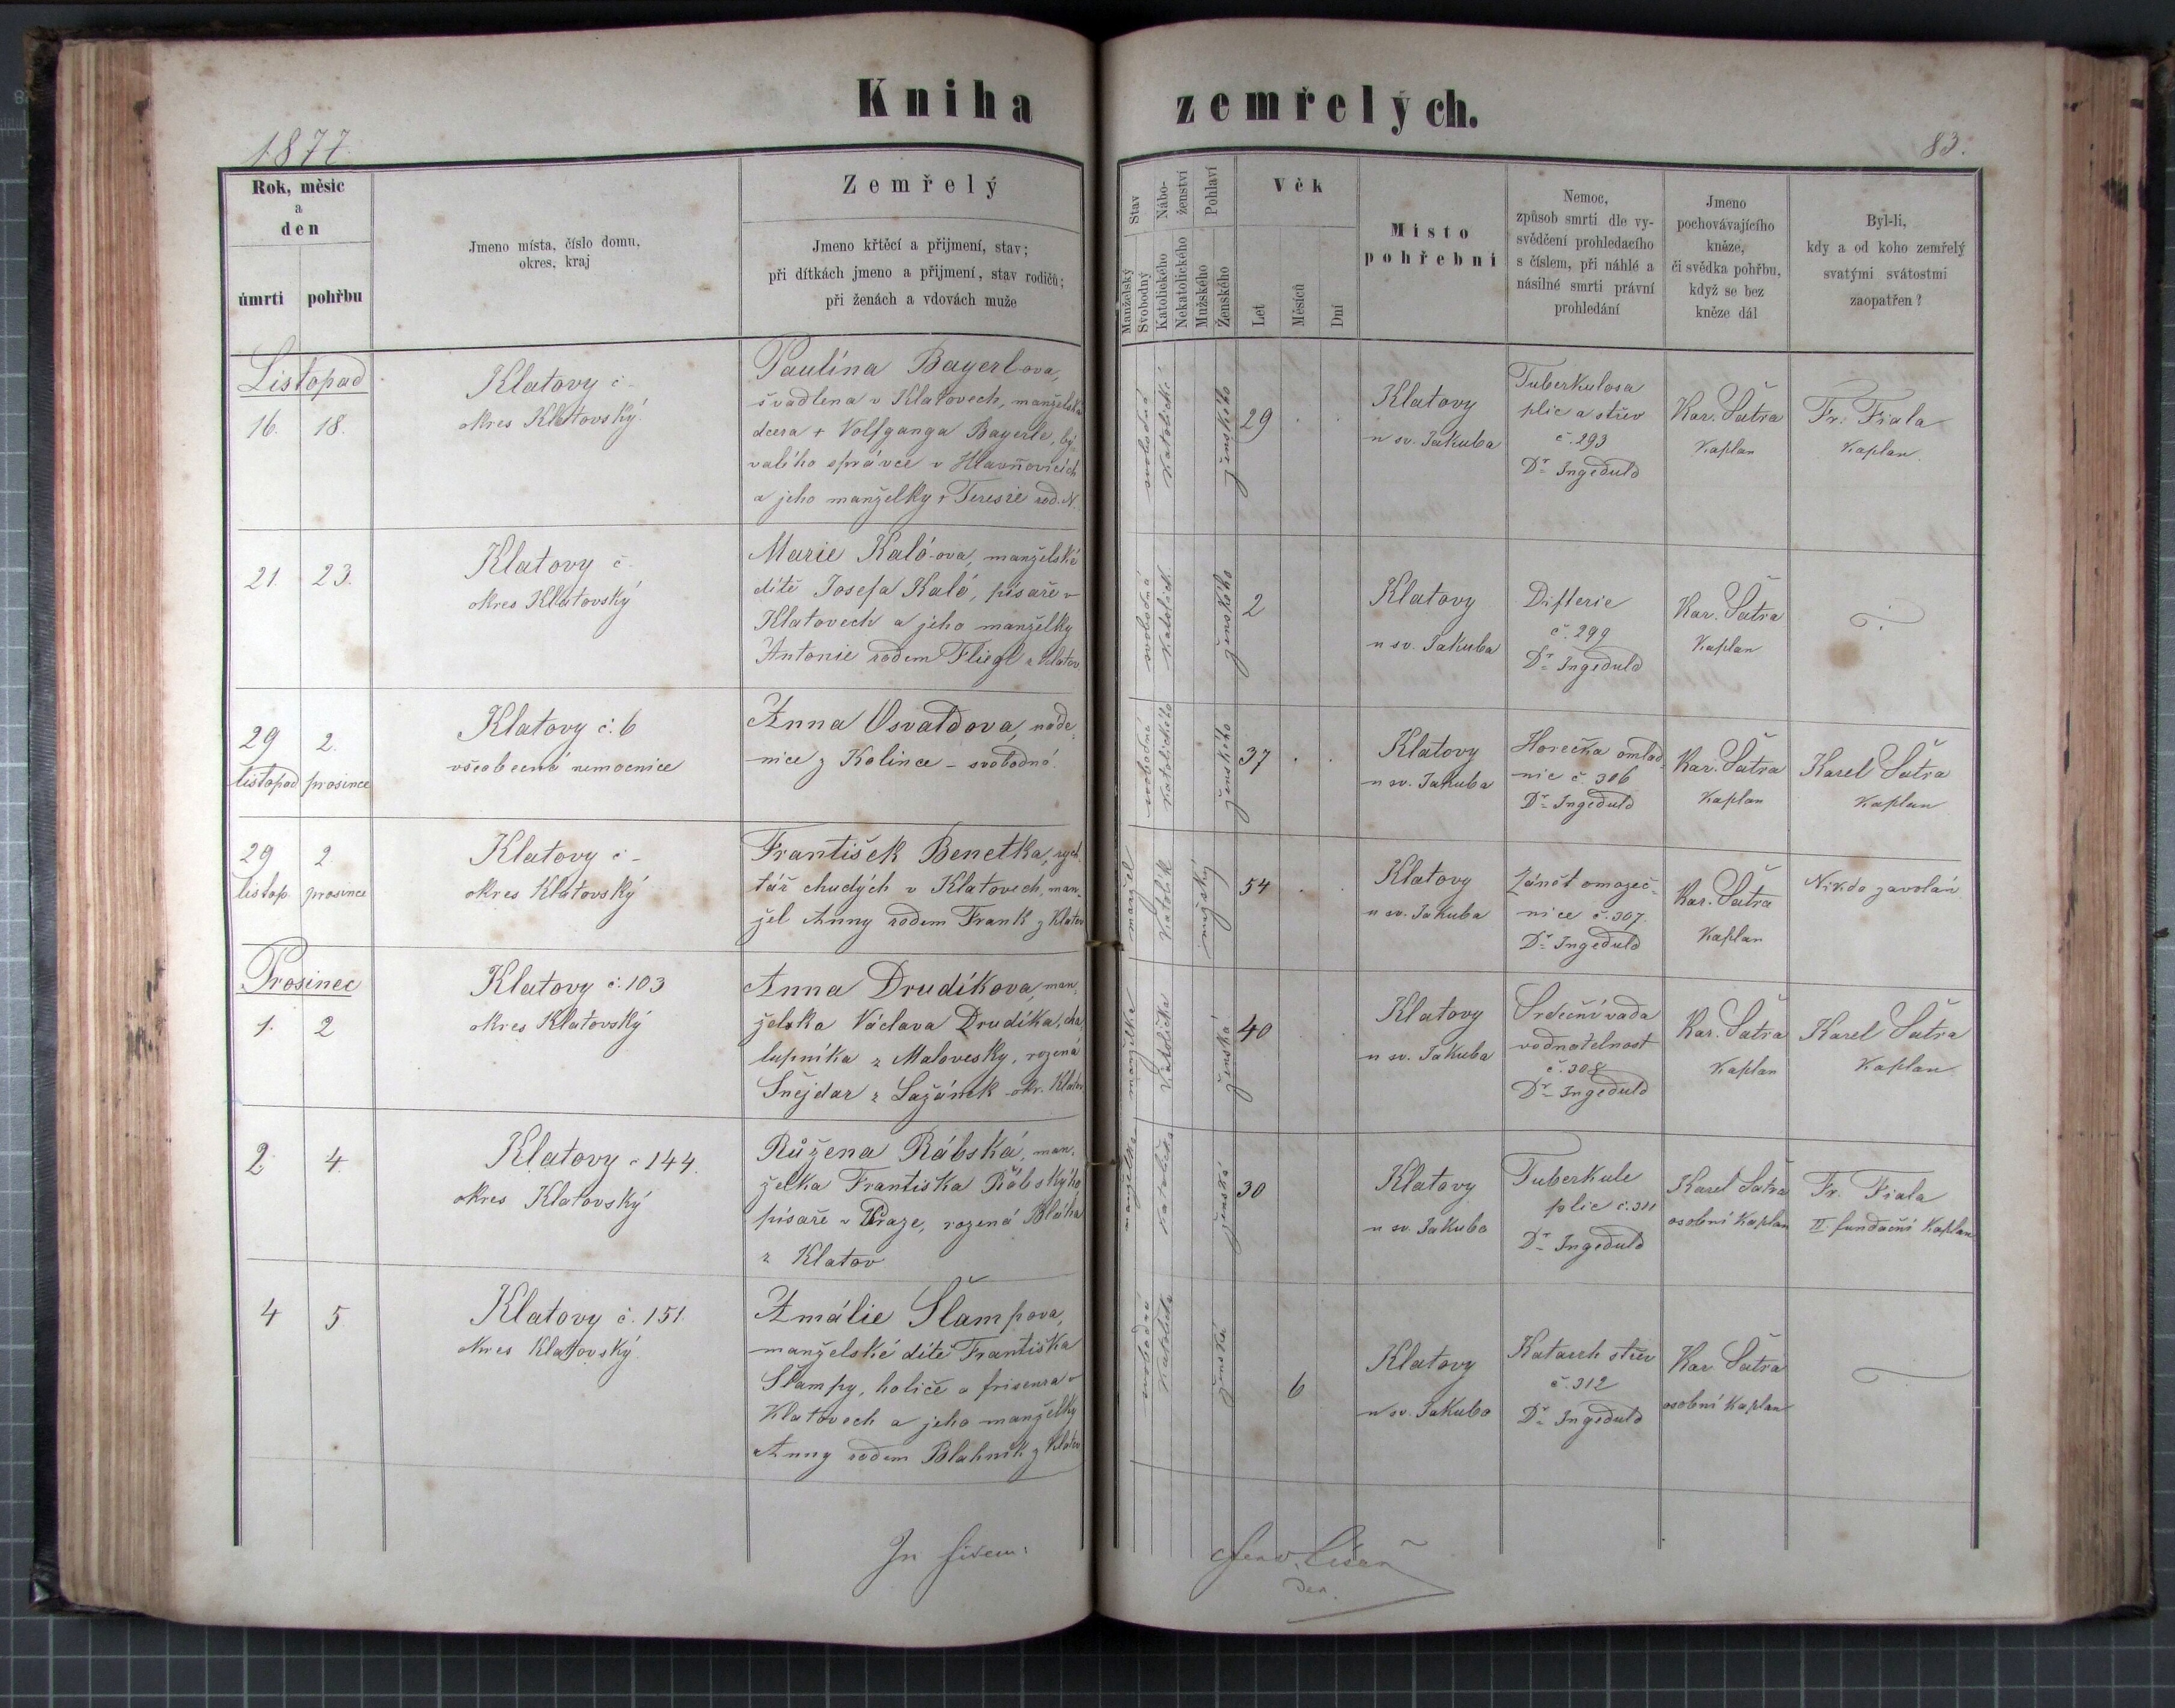 Kniha zemřelých.
1877.
83.
Rok, měsíc
a
den
úmrtí
pohřbu
Jmeno místa, číslo domu,
okres, kraj
Zemřelý
Jmeno křtěcí a přijmení, stav;
při dítkách jmeno a přijmení, stav rodičů;
při ženách a vdovách muže
Stav
Manželský
Svobodný
Nábo-
ženství
Katolického
Nekatolického
Pohlaví
Mužského
Ženského
Věk
Let
Měsíců
Dní
Místo
pohřební
Nemoc,
způsob smrti dle vy-
svědčení prohledacího
s číslem, při náhlé a
násilné smrti právní
prohledání
Jmeno
pochovávajícího
kněze,
či svědka pohřbu,
když se bez
kněze dál
Byl-li,
kdy a od koho zemřelý
svatými svátostmi
zaopatřen?
Listopad
16. 18.
Klatovy č -
okres Klatovský
Paulína Bayerl-ova,
švadlena v Klatovech, manželská
dcera † Volfganga Bayerle, bý-
valého správce v Hlavňovicích
a jeho manželky † Teresie rod. N.
svobodná
katolické
ženského
29
Klatovy
u sv. Jakuba
Tuberkulosa
plic a střev
č. 293
Dr. Ingeduld
Kar. Šatra
Kaplan
Fr. Fiala
Kaplan.
21. 23.
Klatovy č.
okres Klatovský
Marie Kaló-ova, manželské
dítě Josefa Kaló, písaře v
Klatovech a jeho manželky
Antonie rodem Fliegl z Klatov
svobodná
katolick.
ženského
2
Klatovy
u sv. Jakuba
Difterie
č. 299
Dr. Ingeduld
Kar. Šatra
Kaplan
29 2.
listopad prosince
Klatovy č. 6
všeobecná nemocnice
Anna Osvaldova, náde-
nice z Kolince - svobodná.
svobodná
katolického
ženského
37
Klatovy
u sv. Jakuba
Horečka omlad-
nic č. 306
Dr. Ingeduld
Kar. Šatra
Kaplan
Karel Šatra
Kaplan
29 2.
listop. prosince
Klatovy č -
okres Klatovský
František Benetka, rych-
tář chudých v Klatovech, man-
žel Anny rodem Frank z Klatov
manžel
katolík
mužský
54
Klatovy
u sv. Jakuba
Zánět omozeč-
nice č. 307.
Dr. Ingeduld
Kar. Šatra
Kaplan
Nikdo zavolán
Prosinec
1. 2
Klatovy č. 103
okres Klatovský
Anna Drudíkova, man-
želka Václava Drudíka, cha-
lupníka z Malovesky, rozená
Šnejdar z Lažánek okr. Klatov
manželka
katolička
ženská
40
Klatovy
u sv. Jakuba
Srdeční vada
vodnatelnost
č. 308
Dr. Ingeduld
Kar. Šatra
Kaplan
Karel Šatra
Kaplan
2. 4.
Klatovy č 144.
okres Klatovský
Růžena Rábská, man-
želka Františka Rábského
písaře v Praze, rozená Bláha
z Klatov
manželka
katolička
ženská
30
Klatovy
u sv. Jakuba
Tuberkule
plic č. 311
Dr. Ingeduld
Karel Šatra
osobní Kaplan
Fr. Fiala
II. fundační Kaplan
4 5
Klatovy č. 151.
okres Klatovský
Amálie Šlampova,
manželské dítě Františka
Šlampy, holiče a friseura v
Klatovech a jeho manželky
Anny rodem Blahník z Klatov
svobodná
katolička
ženská
6
Klatovy
u sv. Jakuba
Katarrh střev
č. 312
Dr. Ingeduld
Kar. Šatra
osobní Kaplan
In fidem: